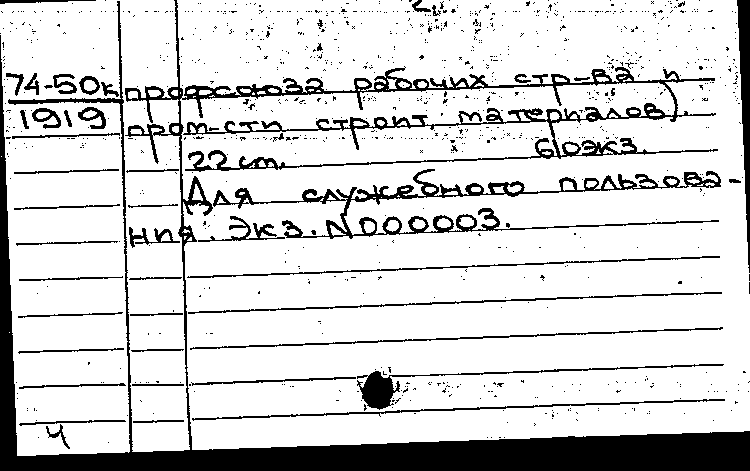 2.
74-50к профсоюза рабочих стр-ва и
1919 пром-сти строит. материалов).
22 см. б/о экз.
Для служебного пользова-
ния. Экз. N000003.
Ч